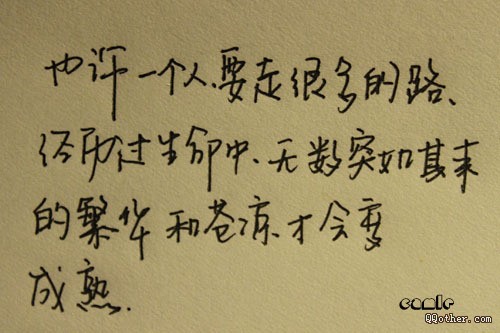 也许一个人、要走很多的路、
经历过生命中、无数突如其来
的繁华和苍凉.才会变
成熟.
comic
QQother.com